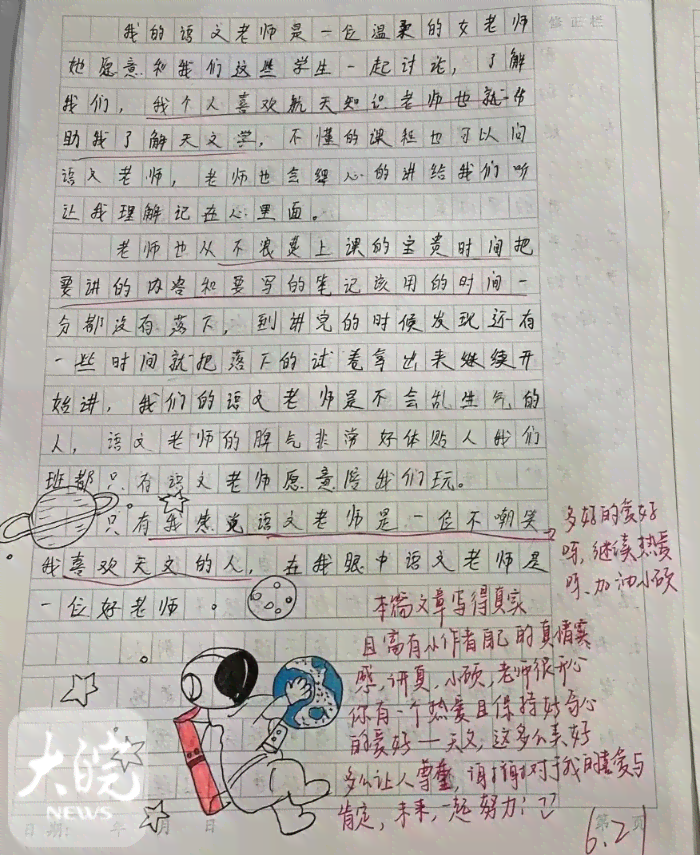 修正栏
我的语文老师是一位温柔的女老师
她愿意和我们这些学生一起讨论，了解
我们，我个人喜欢航天知识老师也就
助我了解天文学，不懂的课程也可以问
语文老师，老师也会细心的讲给我们听
让我理解记在心里面。
老师也从不浪费上课的宝贵时间把
要讲的内容和要写的笔记该用的时间一
分都没有落下，到讲完的时候发现还有
一些时间就把落下的试卷拿出来继续开
始讲，我们的语文老师是不会乱生气的
人，语文老师的脾气非常好体贴人我们
班都只有语文老师愿意陪我们玩。
只有我感觉语文老师是一位不嘲笑
我喜欢天文的人，在我眼中语文老师是
一位好老师。
多好的爱好
呀，继续热爱
呀，加油小硕
本篇文章写得真实
且富有小作者自己的真情实
感，讲真，小硕，老师很开心
你有一个热爱且保持好奇心
的爱好一天文，这多么美好
多么让人尊重，谢谢对于我的喜爱与
肯定，未来，一起努力！
6.21
大皖
NEWS
日期： 年 月 日
第 页